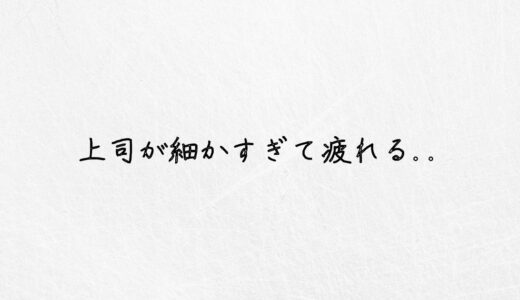 上司が細かすぎて疲れる。。